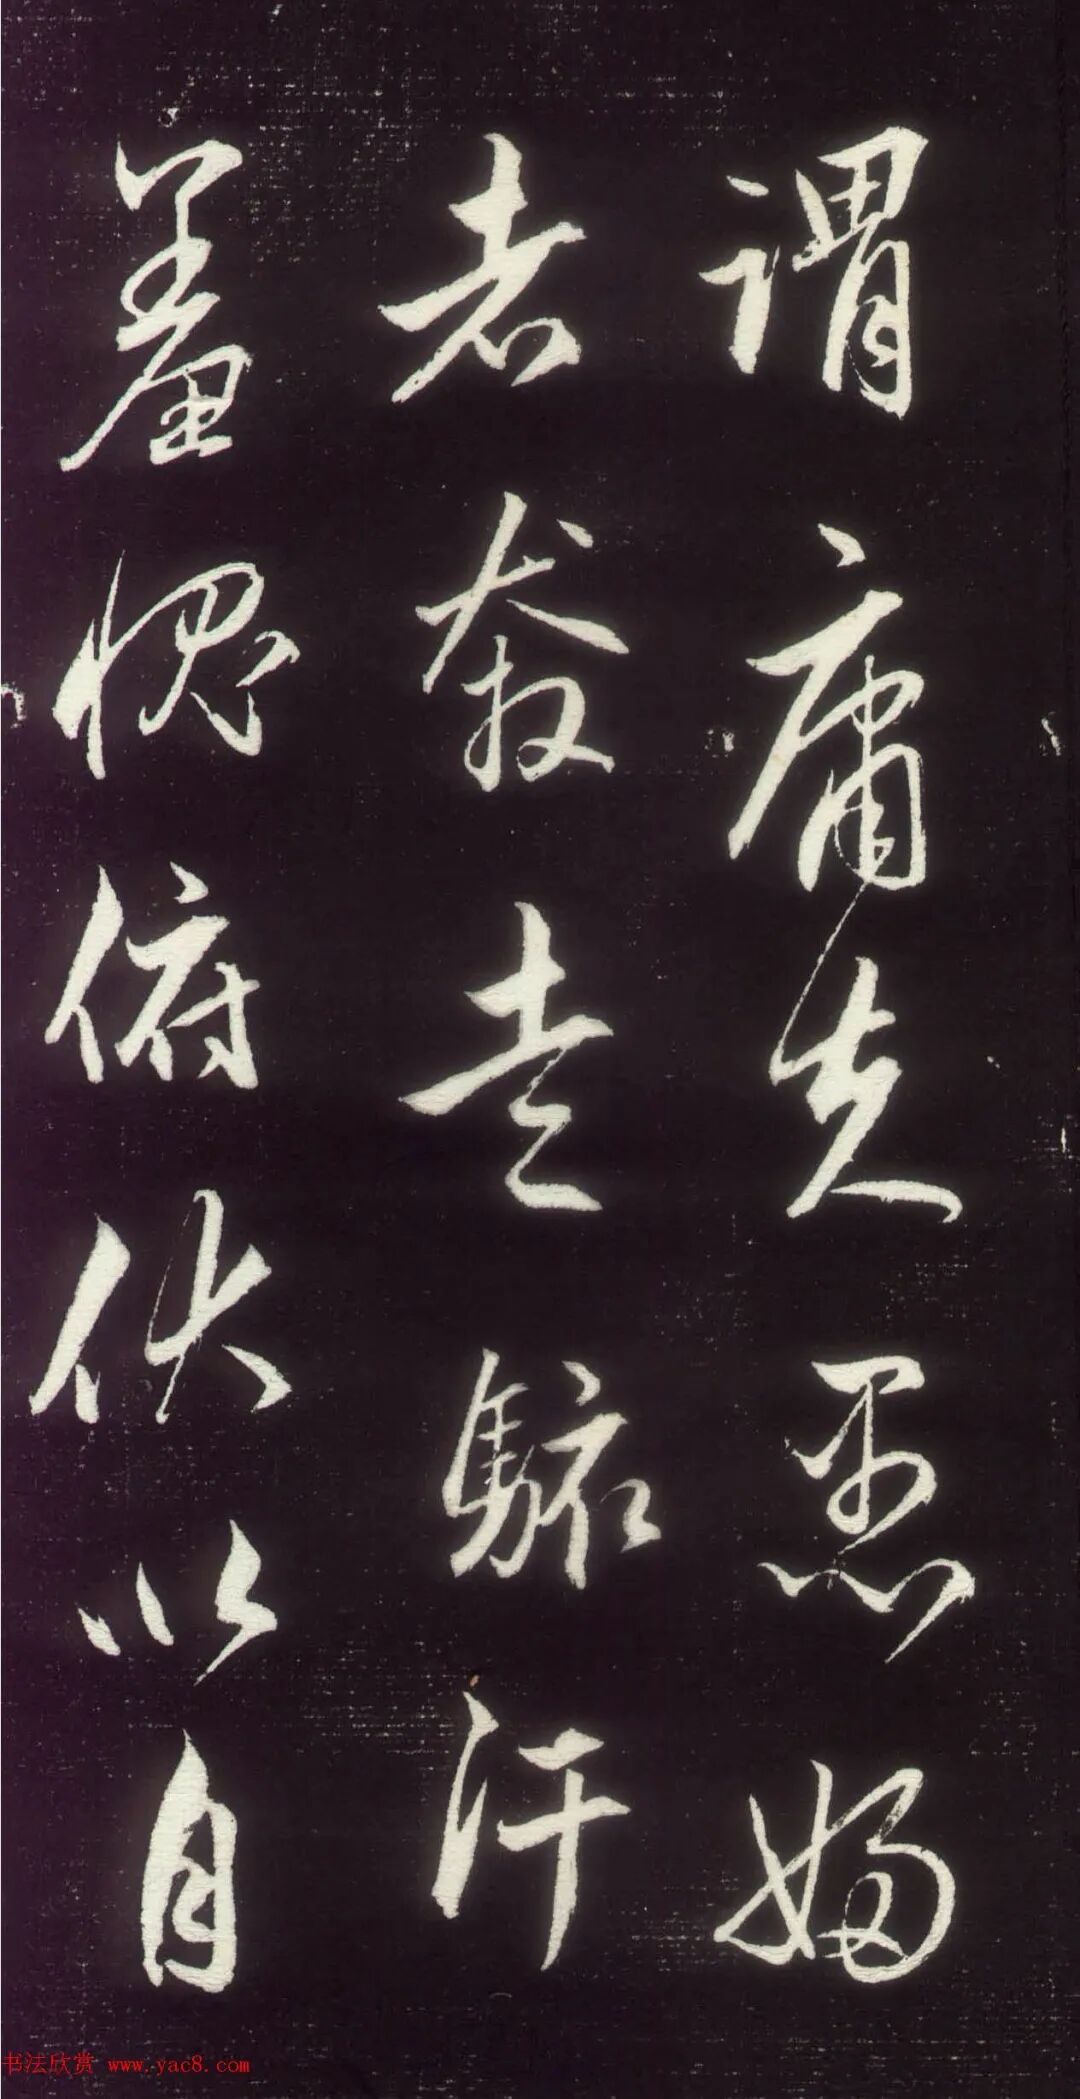 謂庸夫愚婦
者奔走駭汗
羞愧俯伏以自
书法欣赏 www.yac8.com